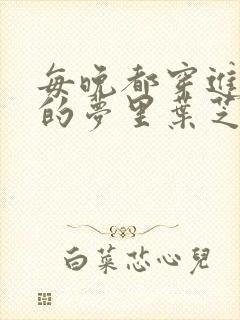 每晚都穿進
的夢里葉芝
白菜芯心兒